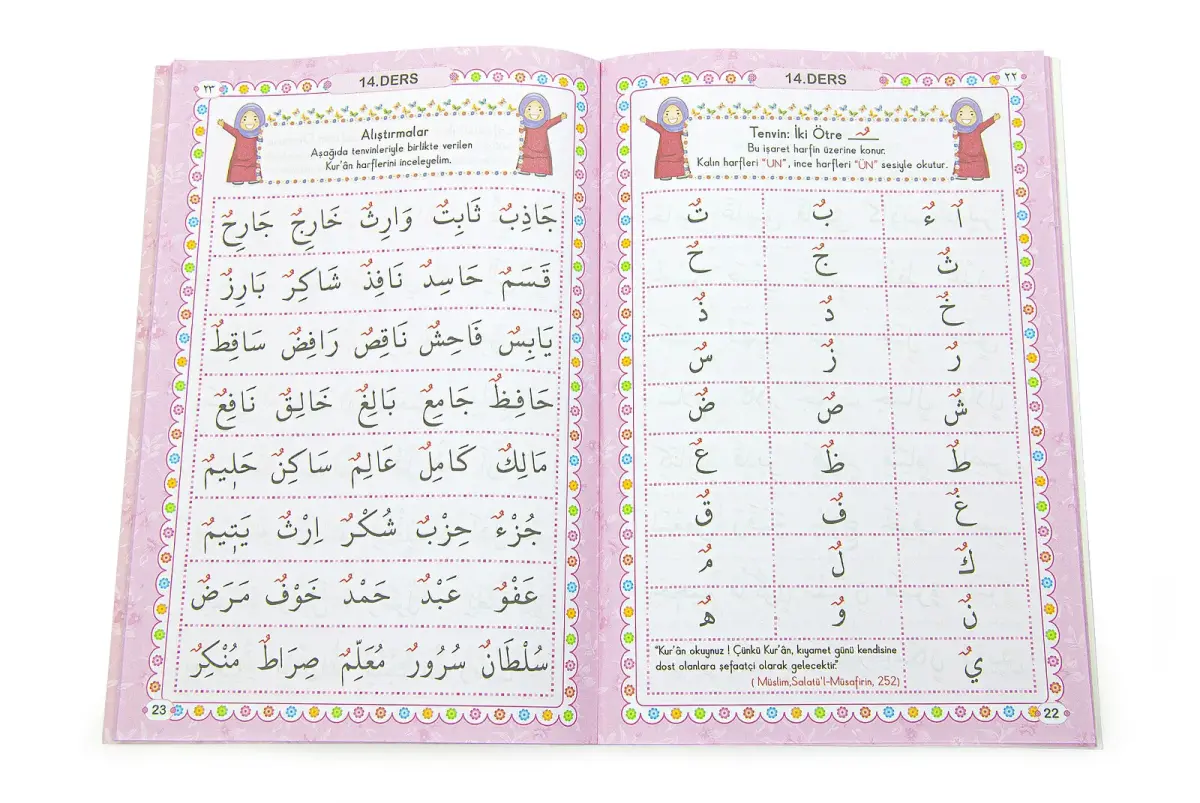 14.DERS
٢٢
Tenvin: İki Ötre ـٌ
Bu işaret harfin üzerine konur.
Kalın harfleri "UN", ince harfleri "ÜN" sesiyle okutur.
اٌ ءٌ بٌ تٌ
ثٌ جٌ حٌ
خٌ دٌ ذٌ
رٌ زٌ سٌ
شٌ صٌ ضٌ
طٌ ظٌ عٌ
غٌ فٌ قٌ
كٌ لٌ مٌ
نٌ وٌ هٌ
يٌ
"Kur'ân okuyunuz ! Çünkü Kur'ân, kıyamet günü kendisine
dost olanlara şefaatçi olarak gelecektir."
( Müslim,Salatü'l-Müsafirin, 252)
22
14.DERS
٢٣
Alıştırmalar
Aşağıda tenvinleriyle birlikte verilen
Kur'ân harflerini inceleyelim.
جَاذِبٌ ثَابِتٌ وَارِثٌ خَارِجٌ جَارِحٌ
قَسَمٌ حَاسِدٌ نَافِذٌ شَاكِرٌ بَارِزٌ
يَابِسٌ فَاحِشٌ نَاقِصٌ رَافِضٌ سَاقِطٌ
حَافِظٌ جَامِعٌ بَالِغٌ خَالِقٌ نَافِعٌ
مَالِكٌ كَامِلٌ عَالِمٌ سَاكِنٌ حَلِيمٌ
جُزْءٌ حِزْبٌ شُكْرٌ اِرْثٌ يَتِيمٌ
عَفْوٌ عَبْدٌ حَمْدٌ خَوْفٌ مَرَضٌ
سُلْطَانٌ سُرُورٌ مُعَلِّمٌ صِرَاطٌ مُنْكِرٌ
23